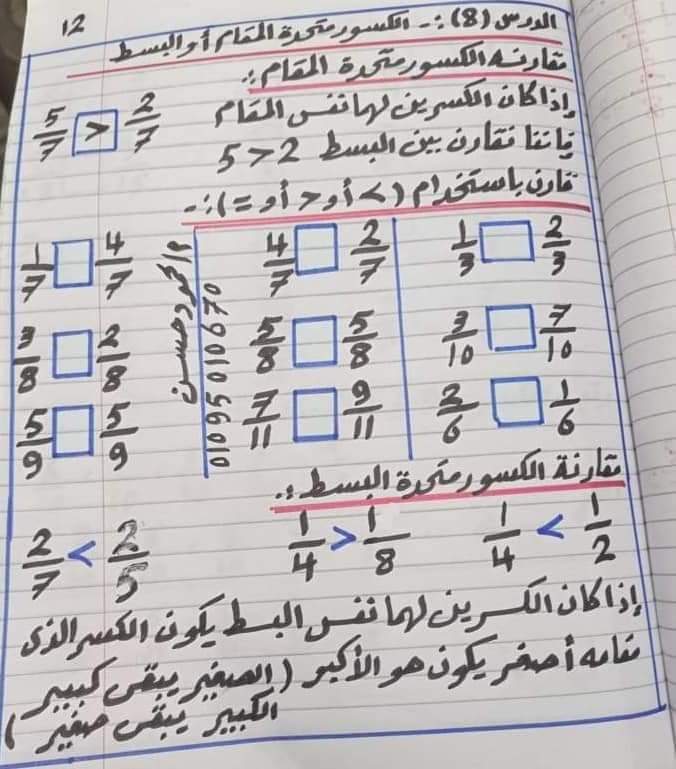 12
الدرس (8) :- الكسور متحدة المقام أو البسط
مقارنة الكسور متحدة المقام :.
إذا كان الكسرين لهما نفس المقام
فإننا نقارن بين البسط 5 > 2
5/7 > 2/7
قارن باستخدام (> أو < أو =) :-
1/3 □ 2/3
3/10 □ 7/10
2/6 □ 1/6
4/7 □ 2/7
5/8 □ 5/8
7/11 □ 9/11
01095010670
1/7 □ 4/7
3/8 □ 2/8
5/9 □ 5/9
مقارنة الكسور متحدة البسط :.
1/4 < 1/2
1/4 > 1/8
2/7 < 2/5
إذا كان الكسرين لهما نفس البسط يكون الكسر الذى
مقامه أصغر يكون هو الأكبر (الصغير يبقى كبيير
الكبير يبقى صغير)